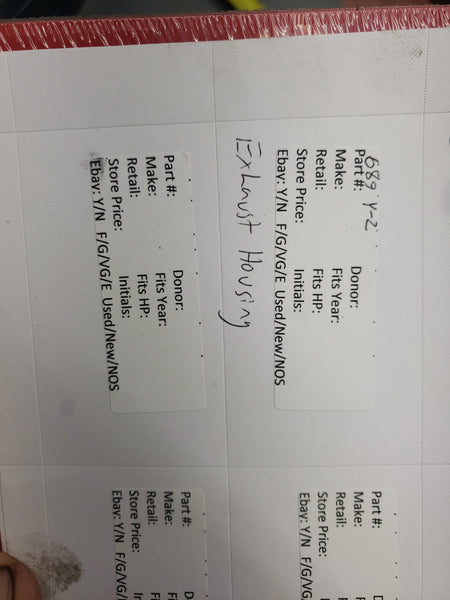 689 Y-2
Part #: Donor:
Make: Fits Year:
Retail: Fits HP:
Store Price: Initials:
Ebay: Y/N F/G/VG/E Used/New/NOS
Exhaust Housing
Part #: Donor:
Make: Fits Year:
Retail: Fits HP:
Store Price: Initials:
Ebay: Y/N F/G/VG/E Used/New/NOS
Part #:
Make:
Retail:
Store Price:
Ebay: Y/N F/G/VG
Part #: D
Make: Fi
Retail: Fi
Store Price: In
Ebay: Y/N F/G/VG/E